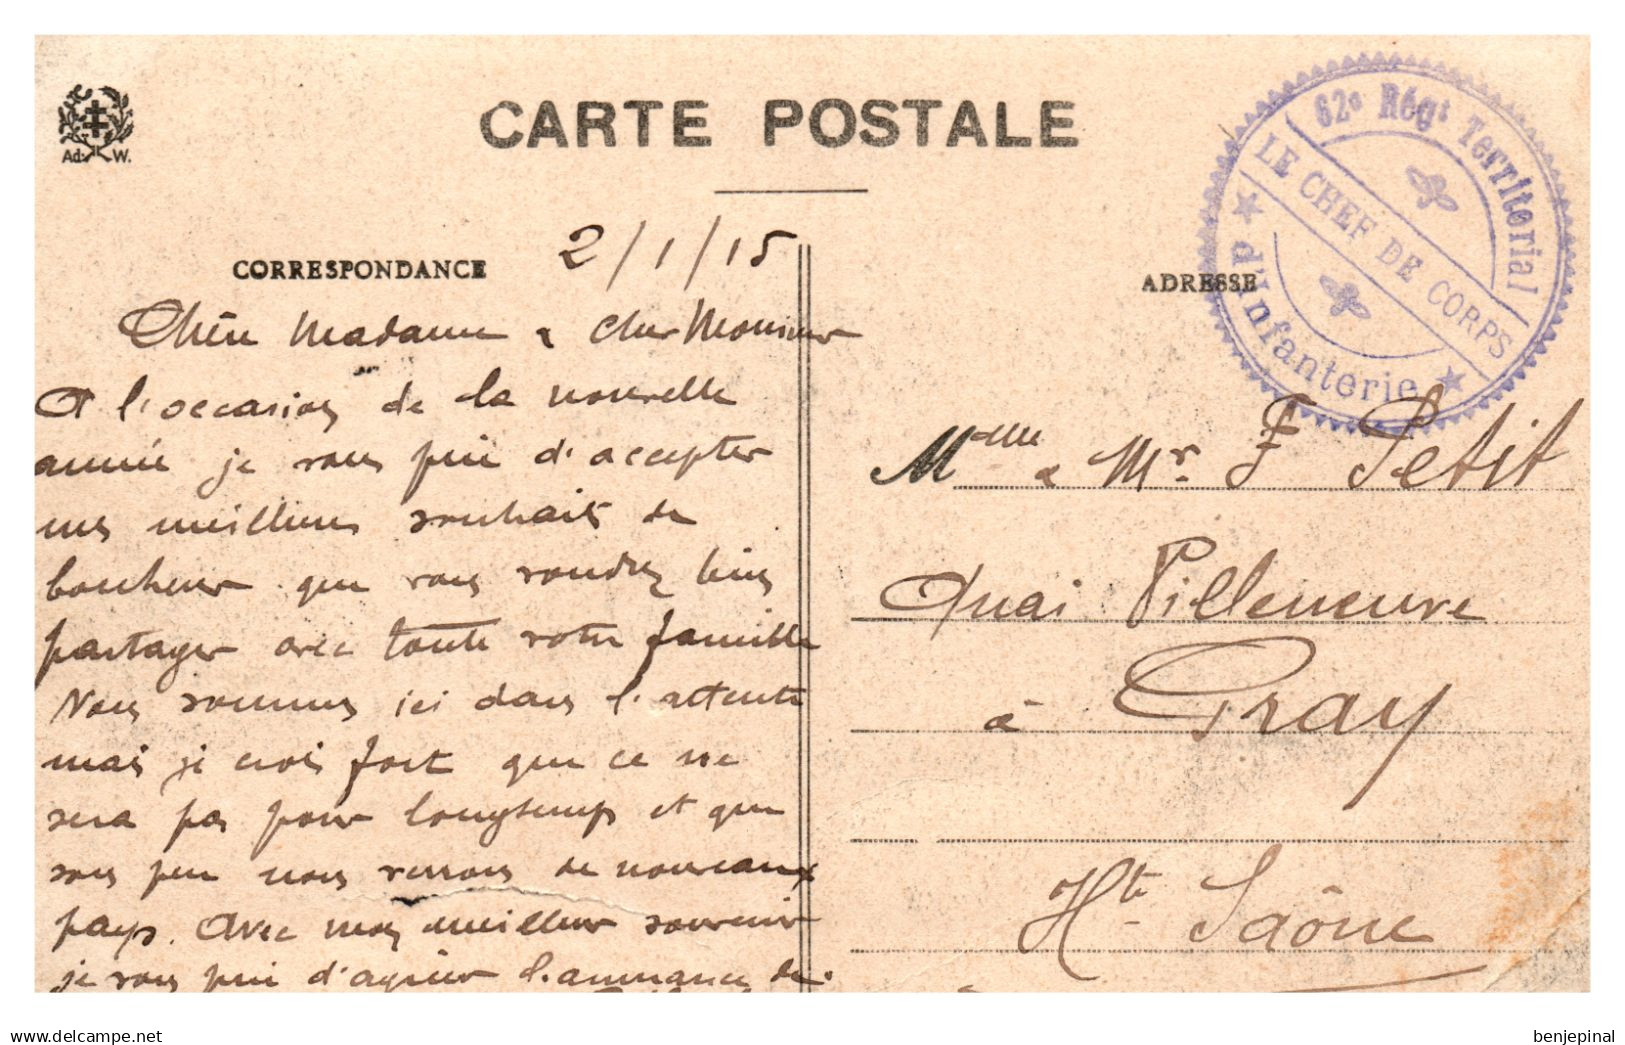 Ad. W.
CARTE POSTALE
62e Régt Territorial
LE CHEF DE CORPS
d'Infanterie
CORRESPONDANCE
ADRESSE
2/1/15
Chère Madame & Cher Monsieur
A l'occasion de la nouvelle
année je vous prie d'accepter
mes meilleurs souhaits de
bonheur que vous voudrez bien
partager avec toute votre famille
Nous sommes ici dans l'attente
mais je crois fort que ce ne
sera pas pour longtemps et que
sous peu nous verrons de nouveaux
pays. Avec mon meilleur souvenir
je vous prie d'agréer l'assurance de
Mme & Mr. F Petit
Quai Villeneuve
à Gray
Hte Saône
delcampe.net
benjepinal